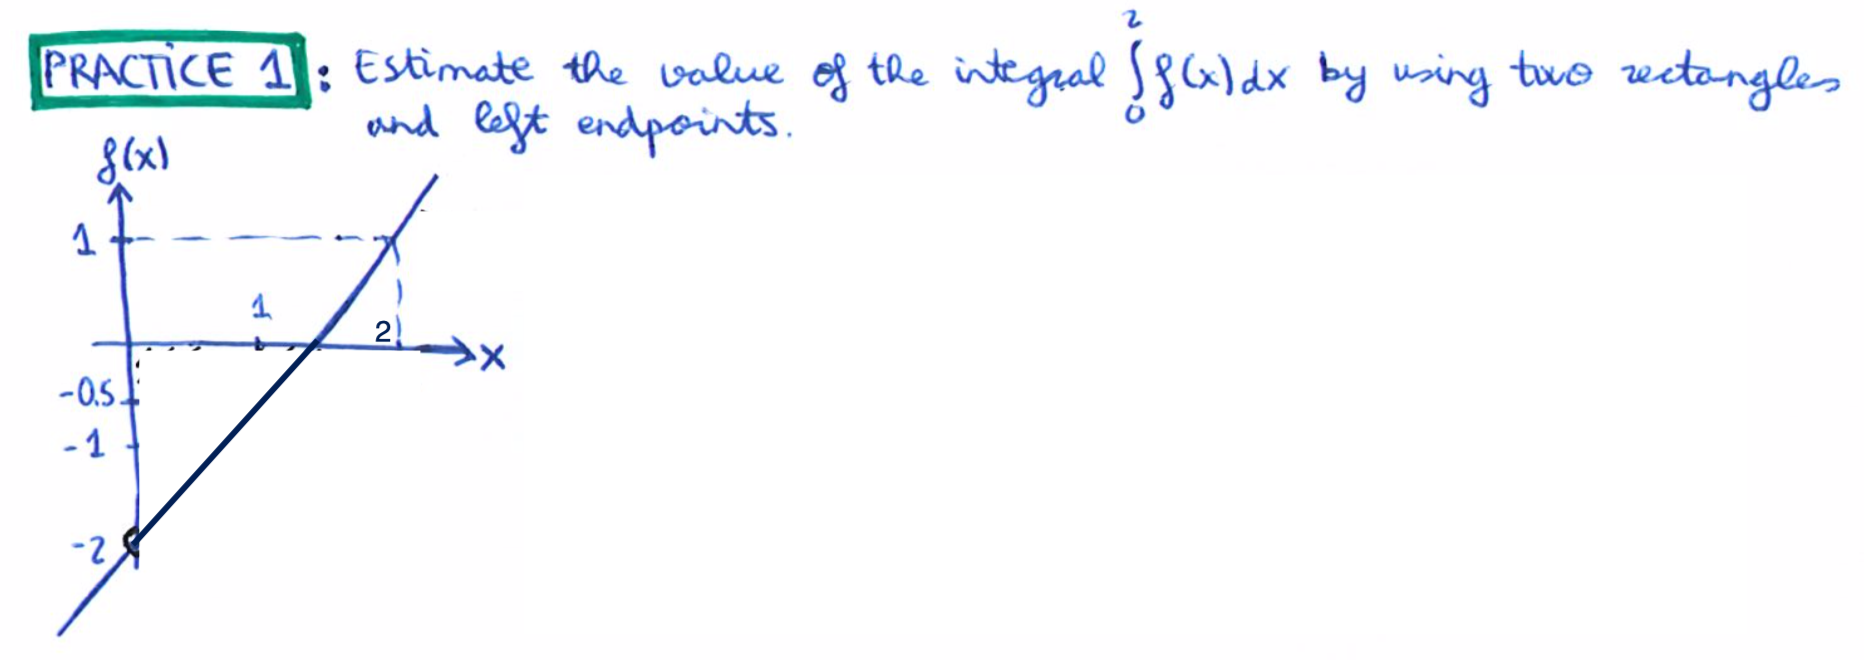 PRACTICE 1 : Estimate the value of the integral ∫₀² f(x) dx by using two rectangles
and left endpoints.
f(x)
1
1
2
x
-0.5
-1
-2